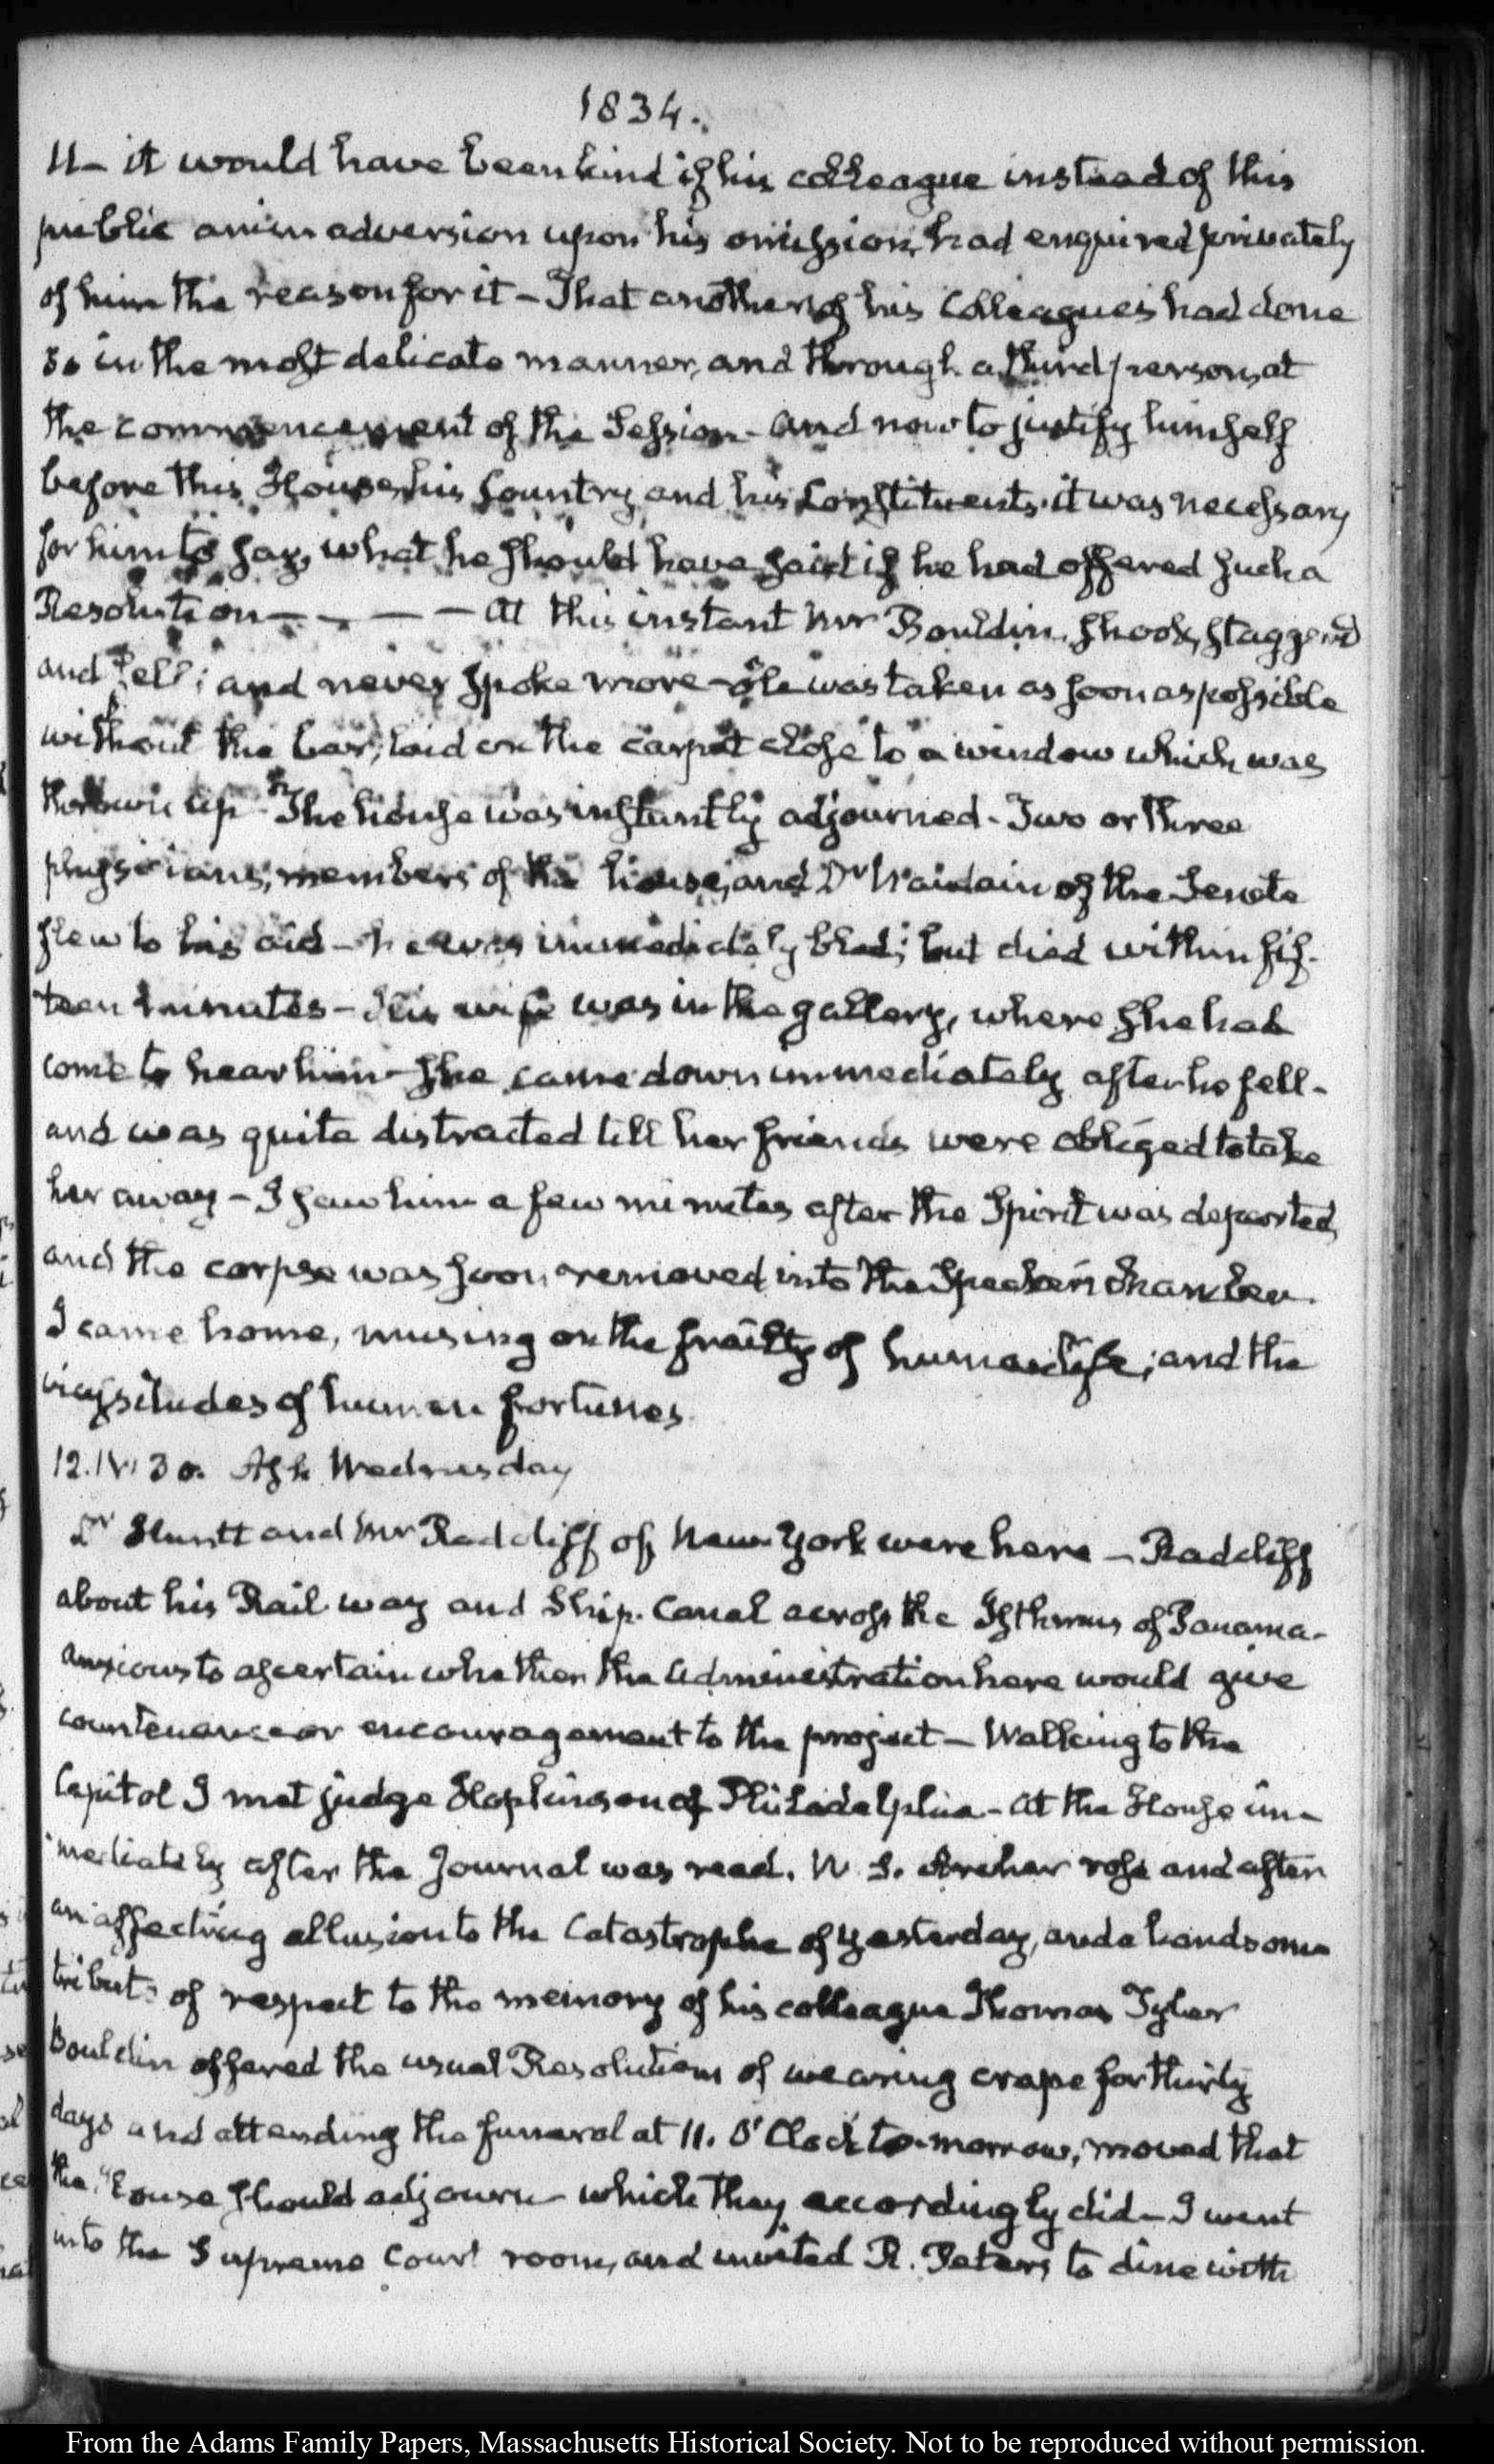 1834.
11 – it would have been kind if his colleague instead of this
public animadversion upon his omission, had enquired privately
of him the reason for it – That another of his Colleagues had done
so in the most delicate manner, and through a third person, at
the commencement of the Session – and now to justify himself
before this House, his Country and his Constituents, it was necessary
for him to say, what he should have said if he had offered such a
Resolution – – – – At this instant Mr Bouldin, shook, staggered
and fell; and never spoke more – He was taken as soon as possible
without the bar; laid on the carpet close to a window which was
thrown up – The house was instantly adjourned – Two or three
physicians, members of the house, and Dr Naudain of the Senate
flew to his aid – he was immediately bled; but died within fif-
teen minutes – His wife was in the gallery, where she had
come to hear him – she came down immediately after he fell –
and was quite distracted till her friends were obliged to take
her away – I saw him a few minutes after the Spirit was departed,
and the corpse was soon removed into the Speaker's Chamber.
I came home, musing on the frailty of human life; and the
vicissitudes of human fortunes.
12. IV. 30. Ash Wednesday
Dr Huntt and Mr Radcliff of New York were here – Radcliff
about his Rail way and Ship. Canal across the Isthmus of Panama –
anxious to ascertain whether the Administration here would give
countenance or encouragement to the project – Walking to the
Capitol I met judge Hopkinson of Philadelphia – At the House im-
mediately after the Journal was read. W. S. Archer rose and after
an affecting allusion to the Catastrophe of yesterday, and a handsome
tribute of respect to the memory of his colleague Thomas Tyler
Bouldin offered the usual Resolutions of wearing crape for thirty
days and attending the funeral at 11. O'Clock to-morrow, moved that
the House should adjourn – which they accordingly did – I went
into the Supreme Court room, and invited R. Peters to dine with
From the Adams Family Papers, Massachusetts Historical Society. Not to be reproduced without permission.